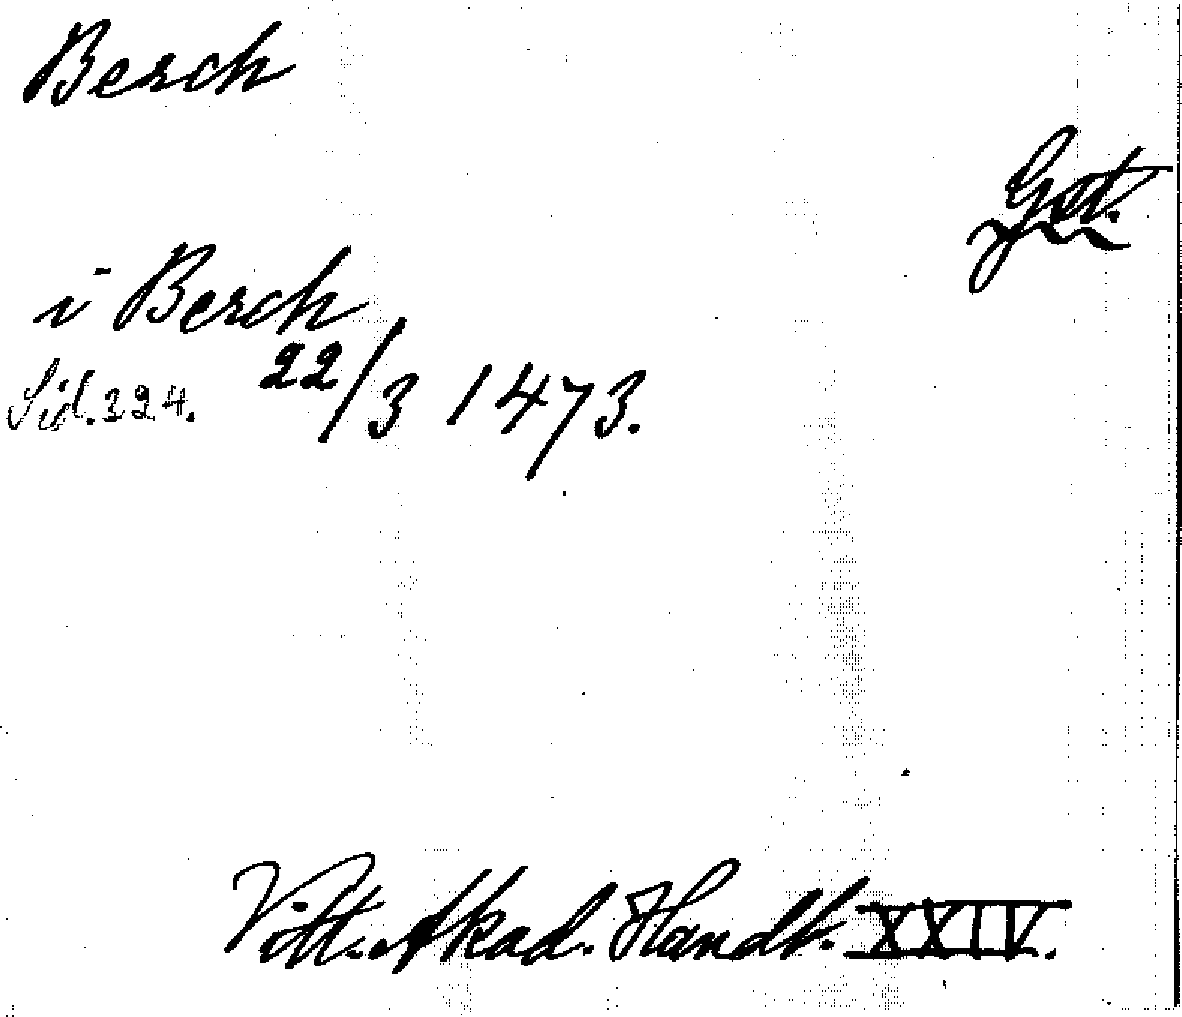 Berch
Got.
i Berch
Sid. 324. 22/3 1473.
Vitt. Akad. Handl. XXIV.